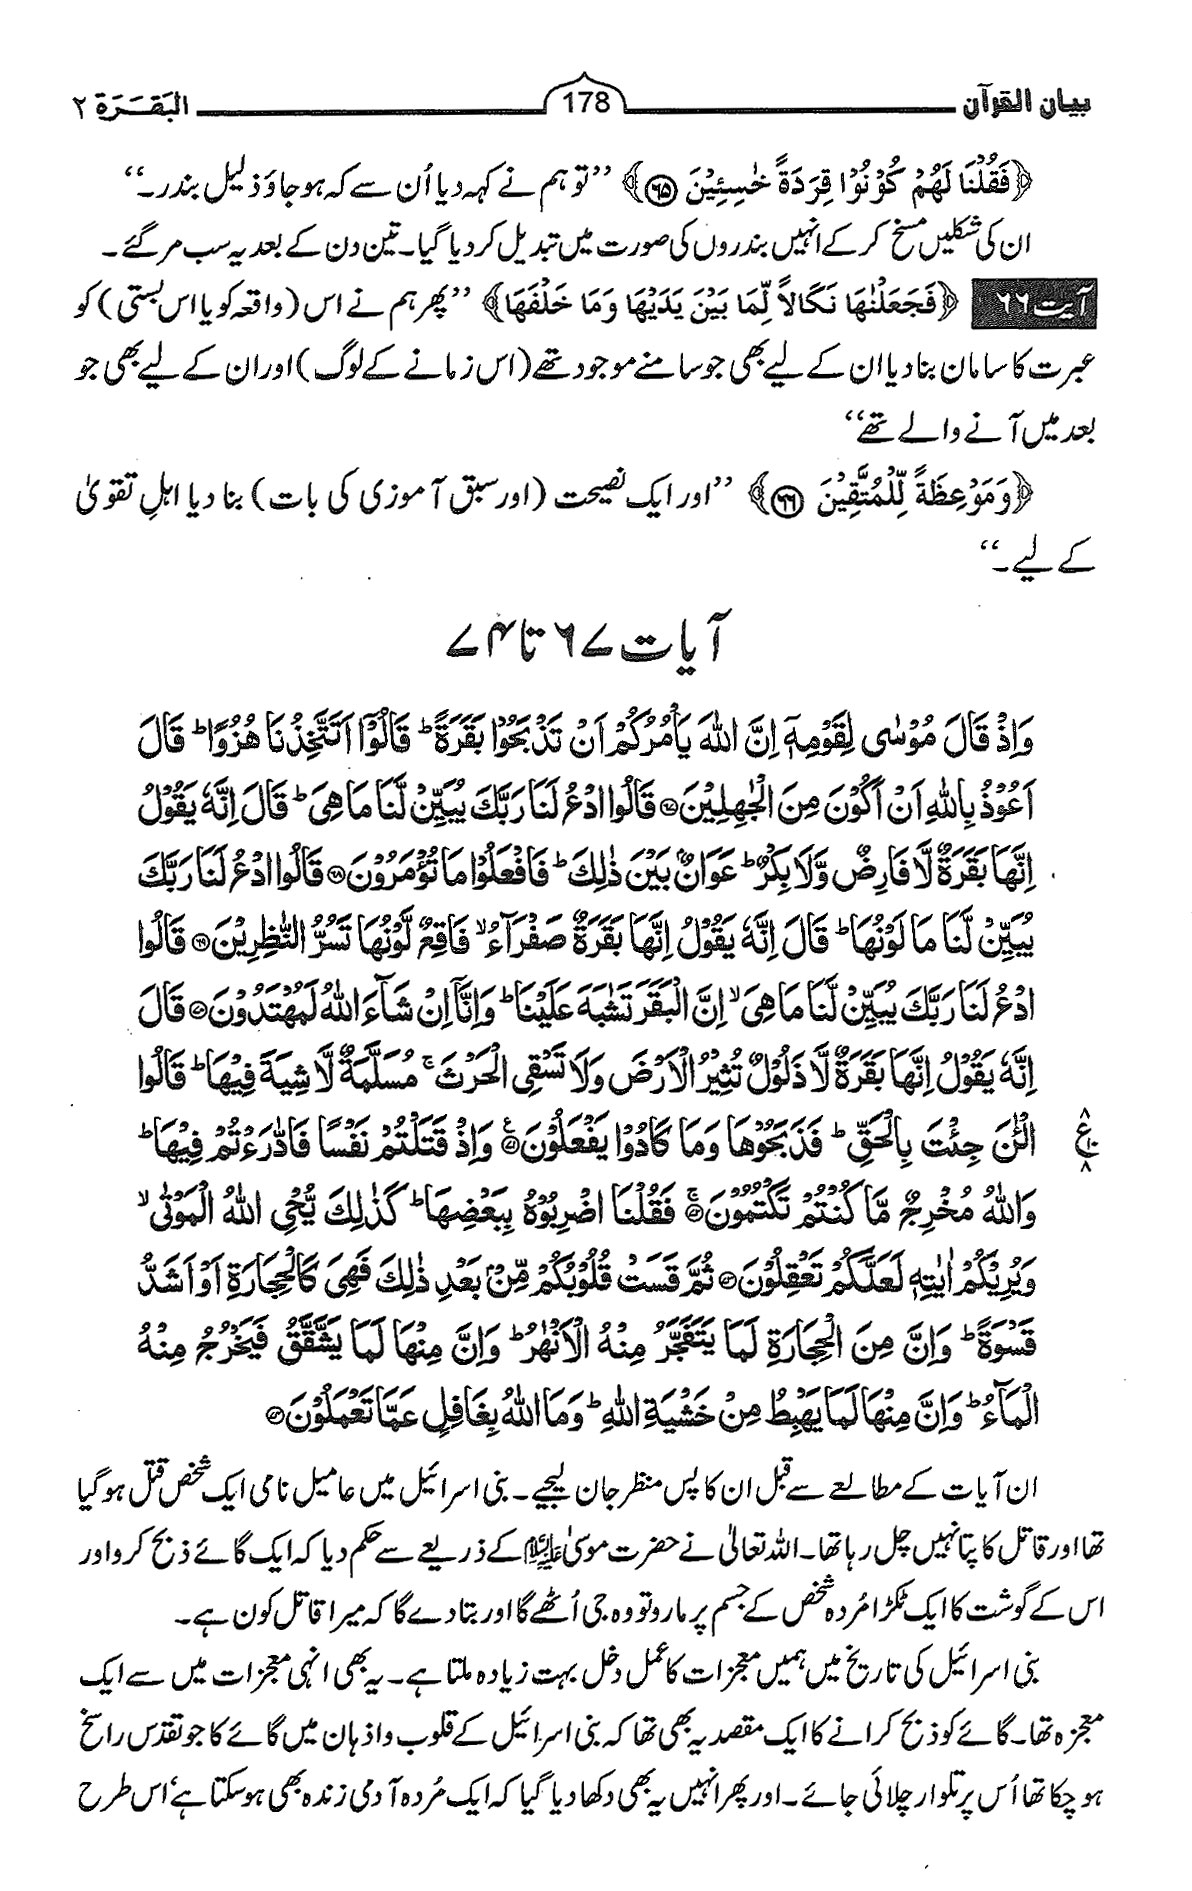 بیان القرآن 178 البَقَرَة ۲
﴿فَقُلْنَا لَهُمْ كُوْنُوْا قِرَدَةً خٰسِئِيْنَ ۝۶۵﴾ ’’تو ہم نے کہہ دیا اُن سے کہ ہو جاؤ ذلیل بندر۔‘‘
ان کی شکلیں مسخ کر کے انہیں بندروں کی صورت میں تبدیل کر دیا گیا۔ تین دن کے بعد یہ سب مر گئے۔
آیت ۶۶ ﴿فَجَعَلْنٰهَا نَكَالًا لِّمَا بَيْنَ يَدَيْهَا وَمَا خَلْفَهَا﴾ ’’پھر ہم نے اس (واقعہ کو یا اس بستی) کو
عبرت کا سامان بنا دیا ان کے لیے بھی جو سامنے موجود تھے (اس زمانے کے لوگ) اور ان کے لیے بھی جو
بعد میں آنے والے تھے‘‘
﴿وَمَوْعِظَةً لِّلْمُتَّقِيْنَ ۝۶۶﴾ ’’اور ایک نصیحت (اور سبق آموزی کی بات) بنا دیا اہلِ تقویٰ
کے لیے۔‘‘
آیات ۶۷ تا ۷۴
وَاِذْ قَالَ مُوْسٰى لِقَوْمِهٖٓ اِنَّ اللّٰهَ يَاْمُرُكُمْ اَنْ تَذْبَحُوْا بَقَرَةً ؕ قَالُوْٓا اَتَتَّخِذُنَا هُزُوًا ؕ قَالَ
اَعُوْذُ بِاللّٰهِ اَنْ اَكُوْنَ مِنَ الْجٰهِلِيْنَ ۝۶۷ قَالُوا ادْعُ لَنَا رَبَّكَ يُبَيِّنْ لَّنَا مَا هِيَ ؕ قَالَ اِنَّهٗ يَقُوْلُ
اِنَّهَا بَقَرَةٌ لَّا فَارِضٌ وَّلَا بِكْرٌ ؕ عَوَانٌۢ بَيْنَ ذٰلِكَ ؕ فَافْعَلُوْا مَا تُؤْمَرُوْنَ ۝۶۸ قَالُوا ادْعُ لَنَا رَبَّكَ
يُبَيِّنْ لَّنَا مَا لَوْنُهَا ؕ قَالَ اِنَّهٗ يَقُوْلُ اِنَّهَا بَقَرَةٌ صَفْرَآءُ ۙ فَاقِعٌ لَّوْنُهَا تَسُرُّ النّٰظِرِيْنَ ۝۶۹ قَالُوا
ادْعُ لَنَا رَبَّكَ يُبَيِّنْ لَّنَا مَا هِيَ ۙ اِنَّ الْبَقَرَ تَشٰبَهَ عَلَيْنَا ؕ وَاِنَّآ اِنْ شَآءَ اللّٰهُ لَمُهْتَدُوْنَ ۝۷۰ قَالَ
اِنَّهٗ يَقُوْلُ اِنَّهَا بَقَرَةٌ لَّا ذَلُوْلٌ تُثِيْرُ الْاَرْضَ وَلَا تَسْقِى الْحَرْثَ ۚ مُسَلَّمَةٌ لَّا شِيَةَ فِيْهَا ؕ قَالُوا
الْـٰٔنَ جِئْتَ بِالْحَقِّ ؕ فَذَبَحُوْهَا وَمَا كَادُوْا يَفْعَلُوْنَ ۝۷۱ وَاِذْ قَتَلْتُمْ نَفْسًا فَادّٰرَءْتُمْ فِيْهَا ؕ
۸ ع ۱۰ ۸
وَاللّٰهُ مُخْرِجٌ مَّا كُنْتُمْ تَكْتُمُوْنَ ۝۷۲ فَقُلْنَا اضْرِبُوْهُ بِبَعْضِهَا ؕ كَذٰلِكَ يُحْىِ اللّٰهُ الْمَوْتٰى ۙ
وَيُرِيْكُمْ اٰيٰتِهٖ لَعَلَّكُمْ تَعْقِلُوْنَ ۝۷۳ ثُمَّ قَسَتْ قُلُوْبُكُمْ مِّنْۢ بَعْدِ ذٰلِكَ فَهِيَ كَالْحِجَارَةِ اَوْ اَشَدُّ
قَسْوَةً ؕ وَاِنَّ مِنَ الْحِجَارَةِ لَمَا يَتَفَجَّرُ مِنْهُ الْاَنْهٰرُ ؕ وَاِنَّ مِنْهَا لَمَا يَشَّقَّقُ فَيَخْرُجُ مِنْهُ
الْمَآءُ ؕ وَاِنَّ مِنْهَا لَمَا يَهْبِطُ مِنْ خَشْيَةِ اللّٰهِ ؕ وَمَا اللّٰهُ بِغَافِلٍ عَمَّا تَعْمَلُوْنَ ۝۷۴
ان آیات کے مطالعے سے قبل ان کا پس منظر جان لیجیے۔ بنی اسرائیل میں عامیل نامی ایک شخص قتل ہو گیا
تھا اور قاتل کا پتا نہیں چل رہا تھا۔ اللہ تعالیٰ نے حضرت موسیٰ علیہ السلام کے ذریعے سے حکم دیا کہ ایک گائے ذبح کرو اور
اس کے گوشت کا ایک ٹکڑا مُردہ شخص کے جسم پر مارو تو وہ جی اُٹھے گا اور بتا دے گا کہ میرا قاتل کون ہے۔
بنی اسرائیل کی تاریخ میں ہمیں معجزات کا عمل دخل بہت زیادہ ملتا ہے۔ یہ بھی انہی معجزات میں سے ایک
معجزہ تھا۔ گائے کو ذبح کرانے کا ایک مقصد یہ بھی تھا کہ بنی اسرائیل کے قلوب واذہان میں گائے کا جو تقدس راسخ
ہو چکا تھا اُس پر تلوار چلائی جائے۔ اور پھر انہیں یہ بھی دکھا دیا گیا کہ ایک مُردہ آدمی زندہ بھی ہو سکتا ہے‘ اس طرح